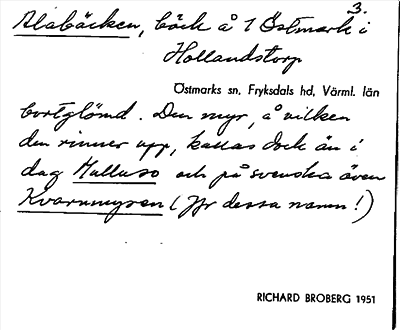 3.
Alabäcken, bäck å 1 Östmark i
Hollandstorp
Östmarks sn, Fryksdals hd, Värml. län
bortglömd. Den myr, å vilken
den rinner upp, kallas dock än i
dag Mulluso och på svenska även
Kvarnmyren (Jfr dessa namn!)
RICHARD BROBERG 1951